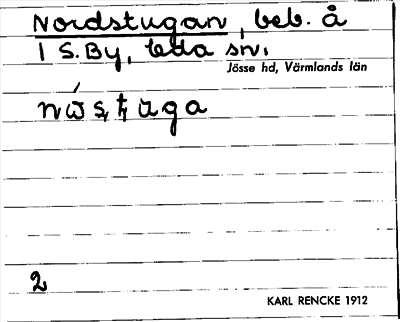 Nordstugan, beb. å
1 S. By, Eda sn.
Jösse hd, Värmlands län
2
KARL RENCKE 1912